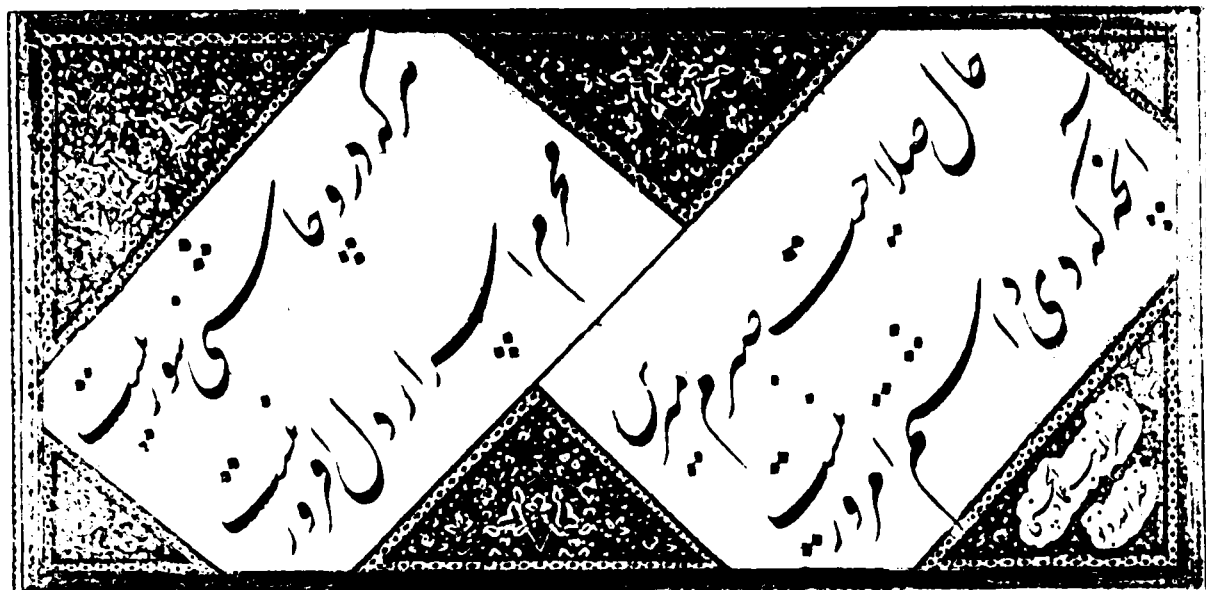 حال صلاحیت صبرم مپرس
آنچه که دی داشتم امروز نیست
هر که درو چاشنی سوز نیست
محرم اسرار دل افروز نیست